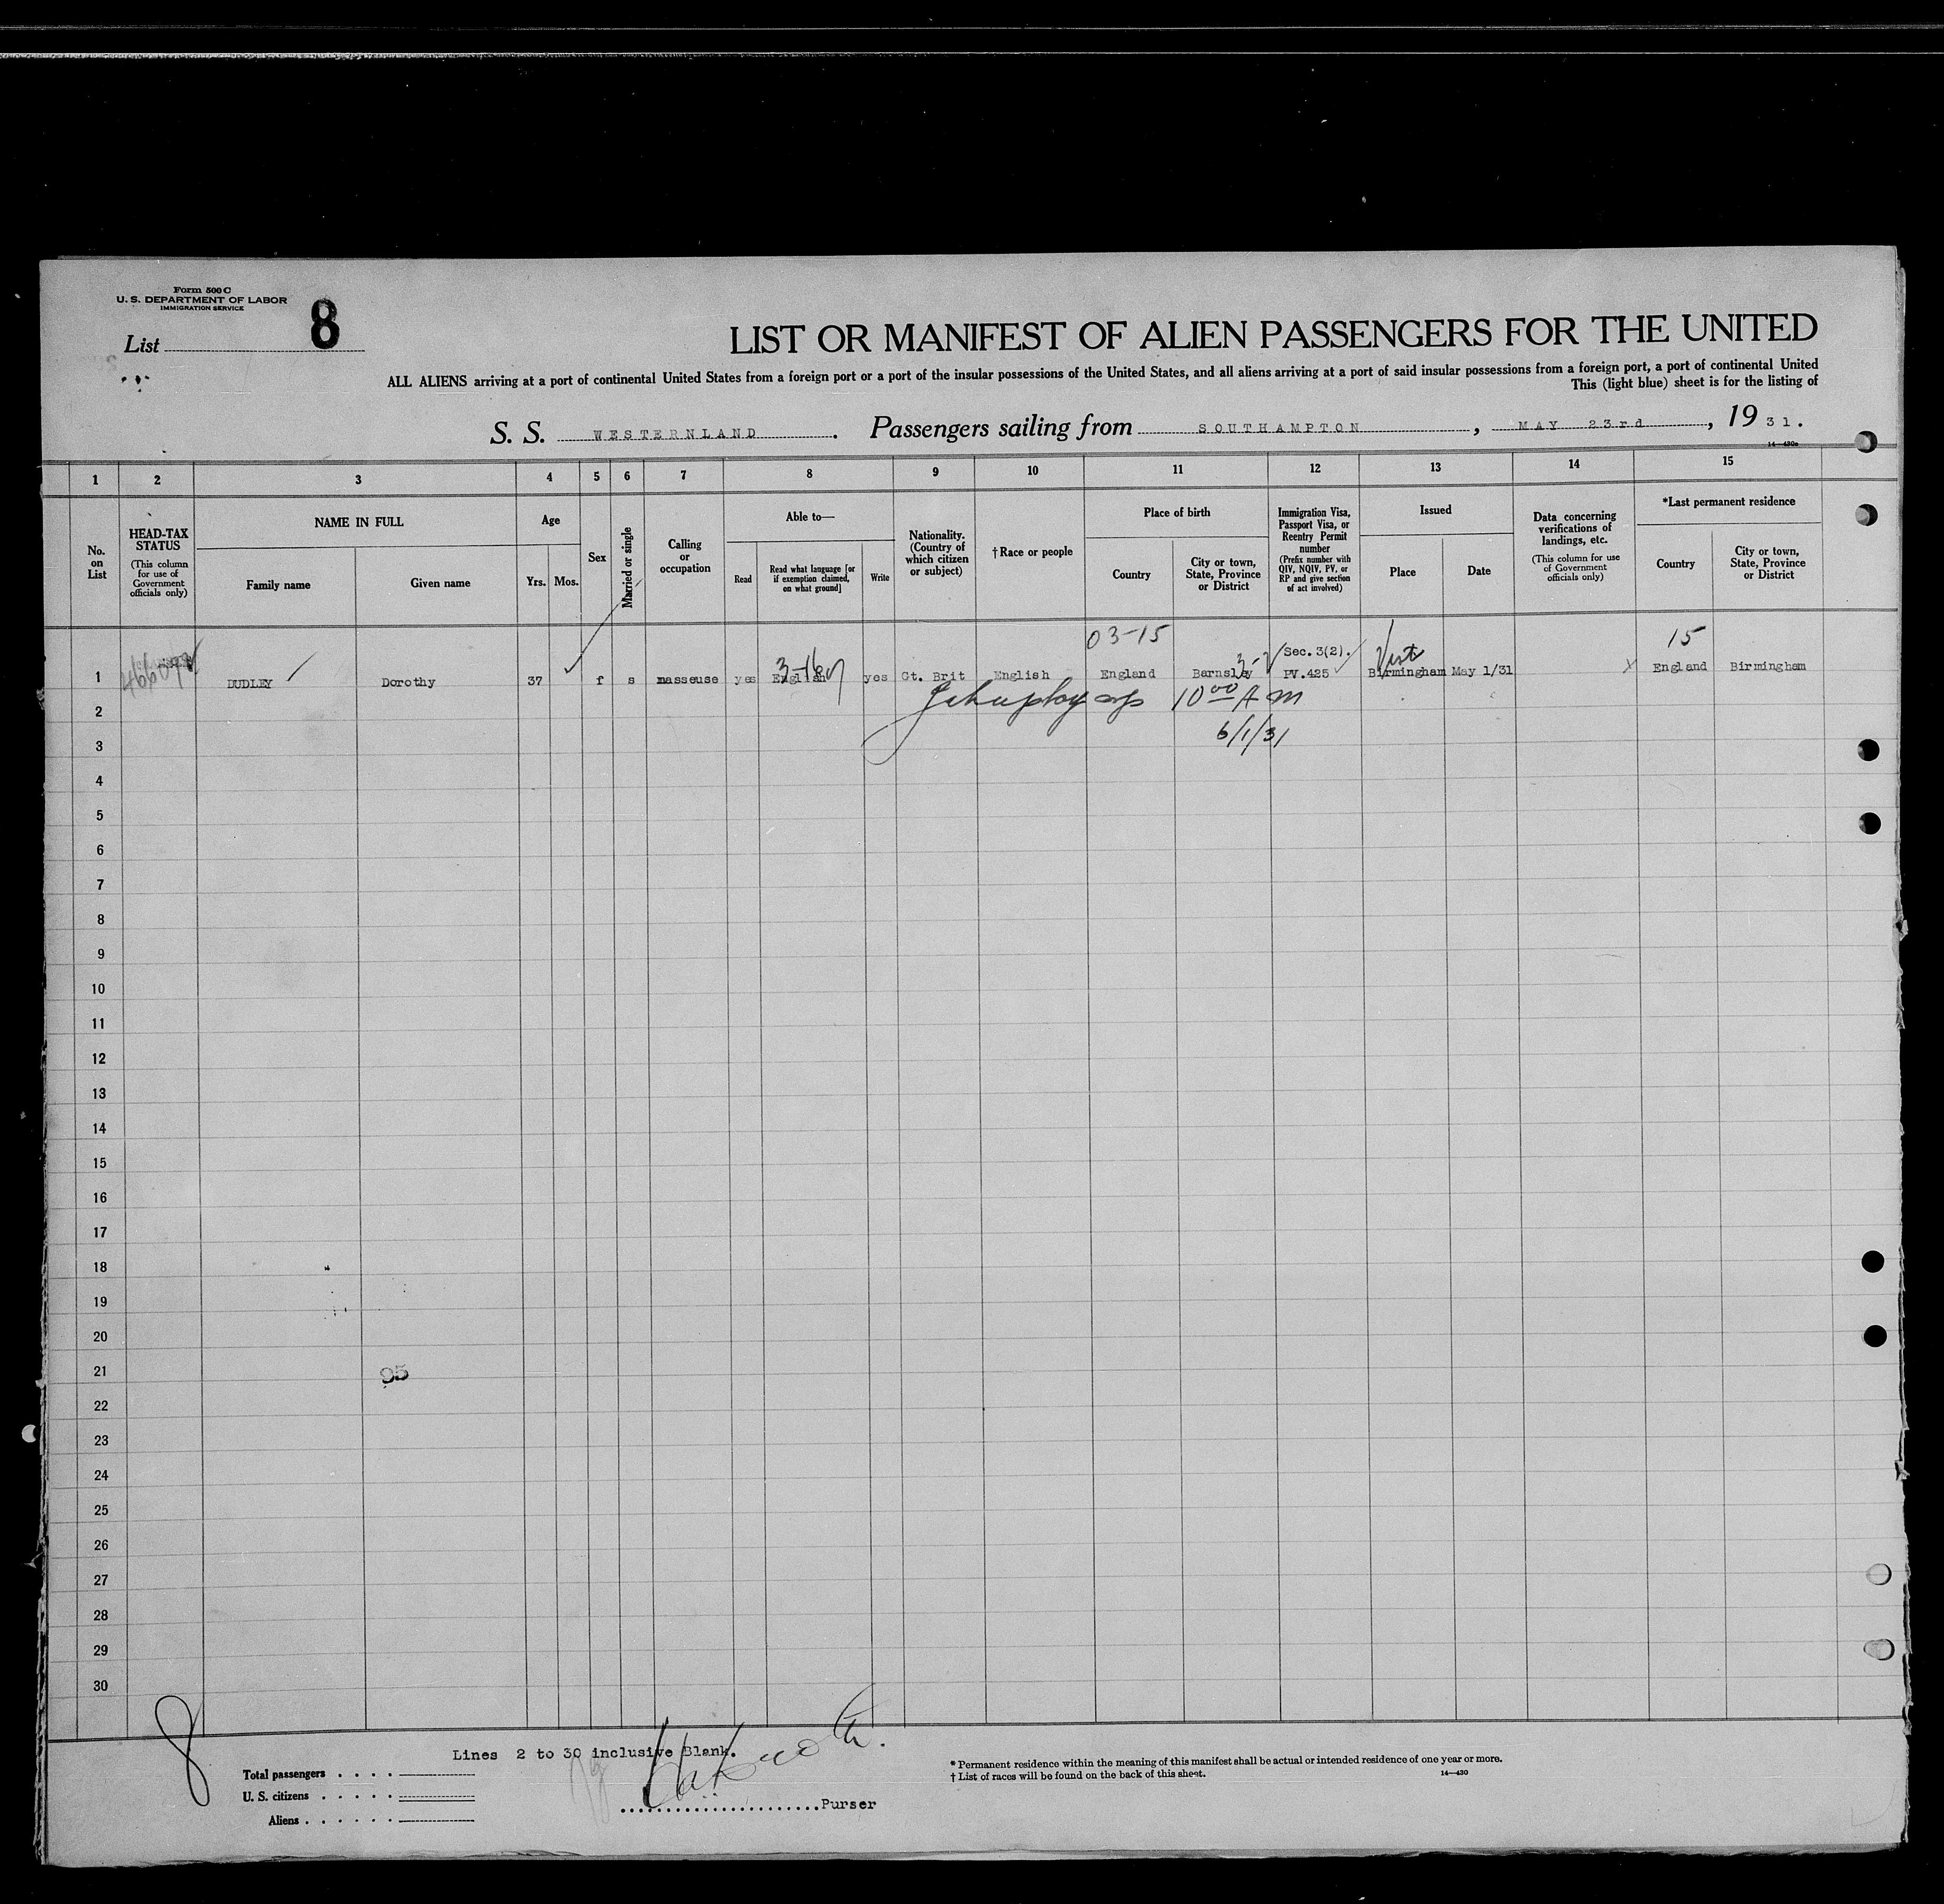 Form 500 C
U. S. DEPARTMENT OF LABOR
IMMIGRATION SERVICE
List 8
LIST OR MANIFEST OF ALIEN PASSENGERS FOR THE UNITED
ALL ALIENS arriving at a port of continental United States from a foreign port or a port of the insular possessions of the United States, and all aliens arriving at a port of said insular possessions from a foreign port, a port of continental United
This (light blue) sheet is for the listing of
S. S. WESTERNLAND. Passengers sailing from SOUTHAMPTON, MAY 23rd, 1931.
14—430a
1 2 3 4 5 6 7 8 9 10 11 12 13 14 15
No. on List
HEAD-TAX STATUS
(This column for use of Government officials only)
NAME IN FULL
Family name
Given name
Age
Yrs. Mos.
Sex
Married or single
Calling or occupation
Able to—
Read
Read what language [or if exemption claimed, on what ground]
Write
Nationality. (Country of which citizen or subject)
† Race or people
Place of birth
Country
City or town, State, Province or District
Immigration Visa, Passport Visa, or Reentry Permit number
(Prefix number with QIV, NQIV, PV, or RP and give section of act involved)
Issued
Place
Date
Data concerning verifications of landings, etc.
(This column for use of Government officials only)
*Last permanent residence
Country
City or town, State, Province or District
03-15
15
Sec. 3(2).
1 DUDLEY Dorothy 37 f s masseuse yes English yes Gt. Brit English England Barnsley PV.425 Birmingham May 1/31 England Birmingham
10 00 A M
2
6/1/31
3
4
5
6
7
8
9
10
11
12
13
14
15
16
17
18
19
20
21
95
22
23
24
25
26
27
28
29
30
8
Lines 2 to 30 inclusive Blank.
Total passengers
U. S. citizens
Aliens
Purser
* Permanent residence within the meaning of this manifest shall be actual or intended residence of one year or more.
† List of races will be found on the back of this sheet.
14—430